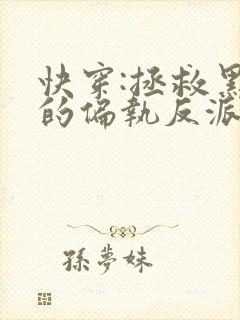 快穿:拯救黑
的偏執反派
孫夢妹